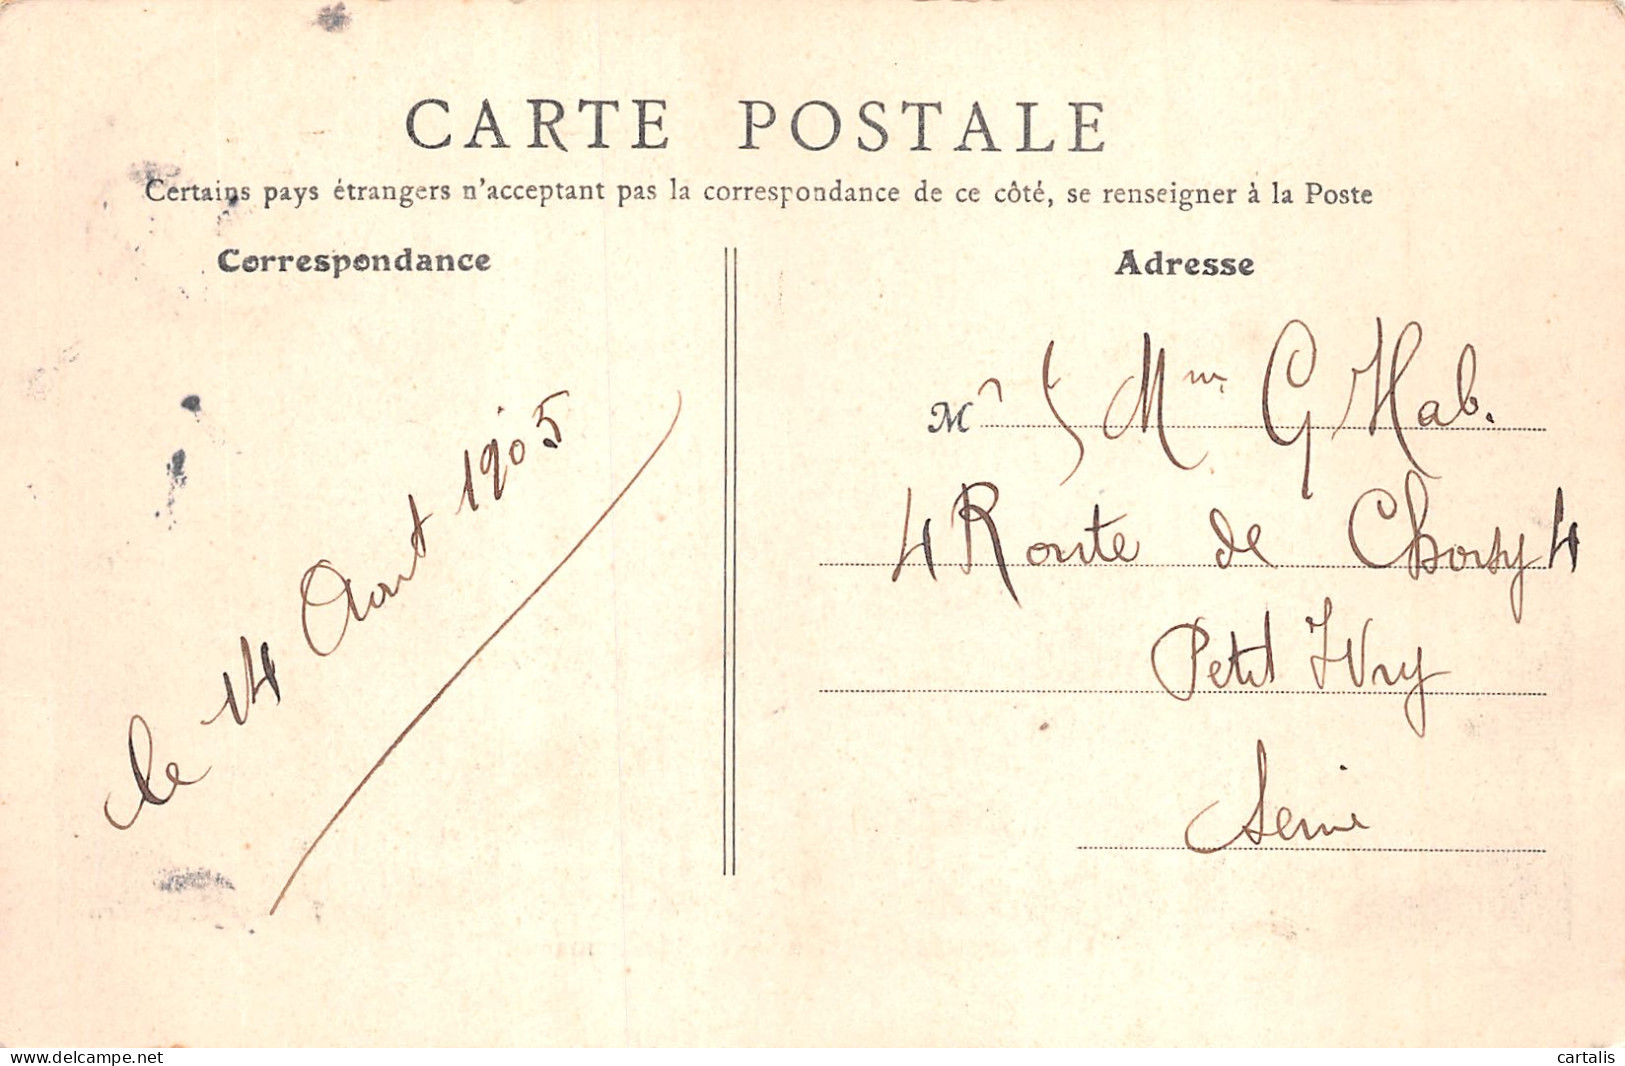 CARTE POSTALE
Certains pays étrangers n'acceptant pas la correspondance de ce côté, se renseigner à la Poste
Correspondance
Adresse
le 14 Aout 1905
M r & Mme G Hab.
4 Route de Choisy 4
Petit Ivry
Seine
www.delcampe.net
cartalis